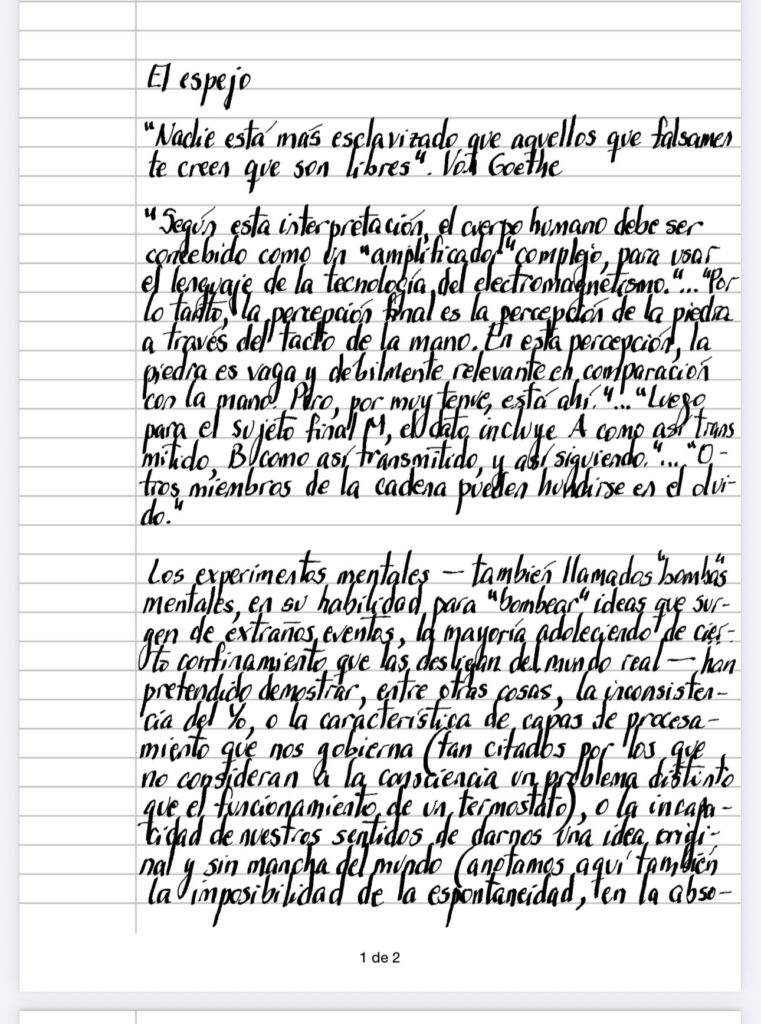 El espejo
"Nadie está más esclavizado que aquellos que falsamen
te creen que son libres". Von Goethe
"Según esta interpretación, el cuerpo humano debe ser
concebido como un "amplificador" complejo, para usar
el lenguaje de la tecnología del electromagnetismo."..."Por
lo tanto, la percepción final es la percepción de la piedra
a través del tacto de la mano. En esta percepción, la
piedra es vaga y débilmente relevante en comparación
con la mano. Pero, por muy tenue, está ahí."..."Luego
para el sujeto final M, el dato incluye A como así trans
mitido, B como así transmitido, y así siguiendo."..."O-
tros miembros de la cadena pueden hundirse en el olvi-
do."
Los experimentos mentales — también llamados "bombas"
mentales, en su habilidad para "bombear" ideas que sur-
gen de extraños eventos, la mayoría adoleciendo de cier-
to confinamiento que las desligan del mundo real — han
pretendido demostrar, entre otras cosas, la inconsisten-
cia del Yo, o la característica de capas de procesa-
miento que nos gobierna (tan citados por los que
no consideran a la consciencia un problema distinto
que el funcionamiento de un termostato), o la incapa-
cidad de nuestros sentidos de darnos una idea origi-
nal y sin mancha del mundo (anotamos aquí también
la imposibilidad de la espontaneidad, en la abso-
1 de 2